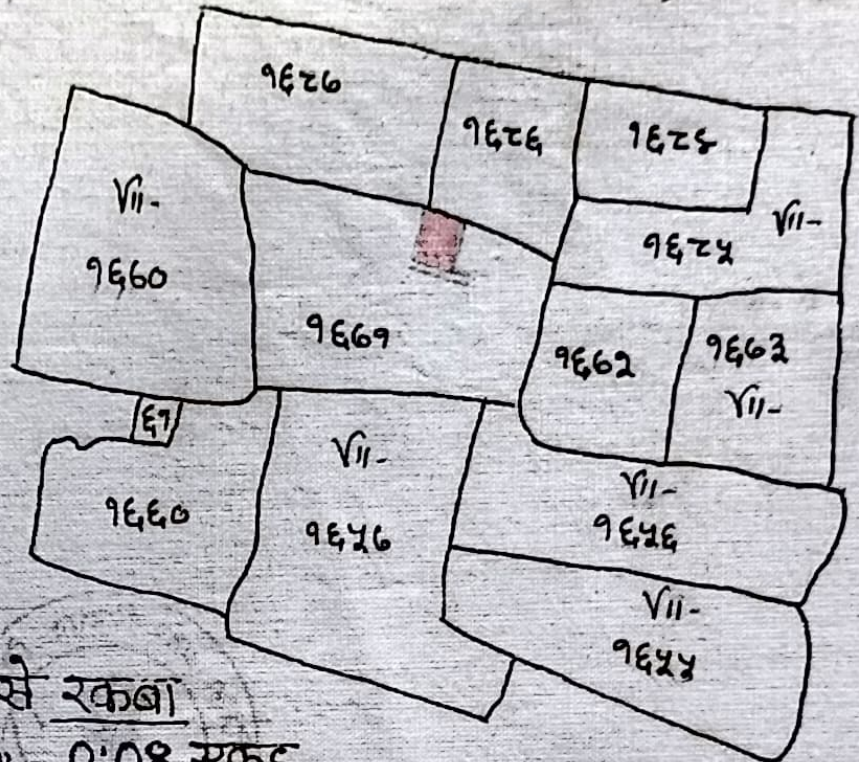 १६८७
१६८६
१६८४
VII-
१६८५
VII-
१६७०
१६७१
१६७२
१६७३
VII-
६१
१६६०
VII-
१६५७
VII-
१६५६
VII-
१६५५
से रकबा
0.08 एकड़